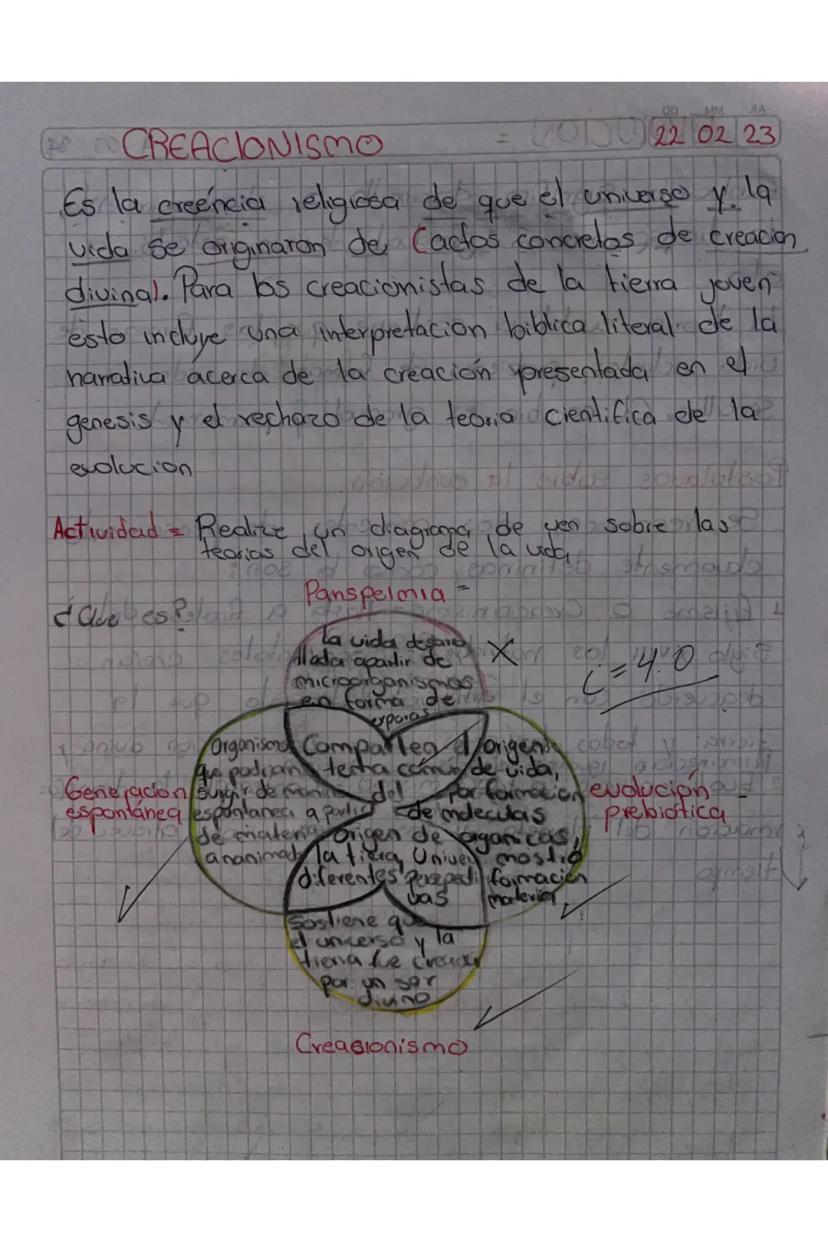 DD MM AA
CREACIONISMO = 22 02 23
Es la creéncia religiosa de que el universo y la
vida se originaron de (actos concretos de creación
divina). Para los creacionistas de la tierra joven
esto incluye una interpretación biblica literal de la
narrativa acerca de la creación presentada en el
genesis y el rechazo de la teoria cientifica de la
evolucion
Actividad = Realize un diagrama de ven sobre las
teorias del origen de la vida
Panspelmia =
¿Que es?
La vida desarro
llada apartir de
microorganismos
en forma de
esporas
X
C=4.0
Generacion
espontánea
Organismos
que podrian
surgir de manera
espontanea a partir
de materia
ananimada
Comparten el
tema comun
del
origen de
la tierra, Univer
diferentes perspecti
vas
origen
de vida,
por formacion
de moleculas
organicas,
mostró
formación
materia
evolución -
prebiotica
Sostiene que
el universo y la
tierra fue creado
por un ser
divino
Creasionismo